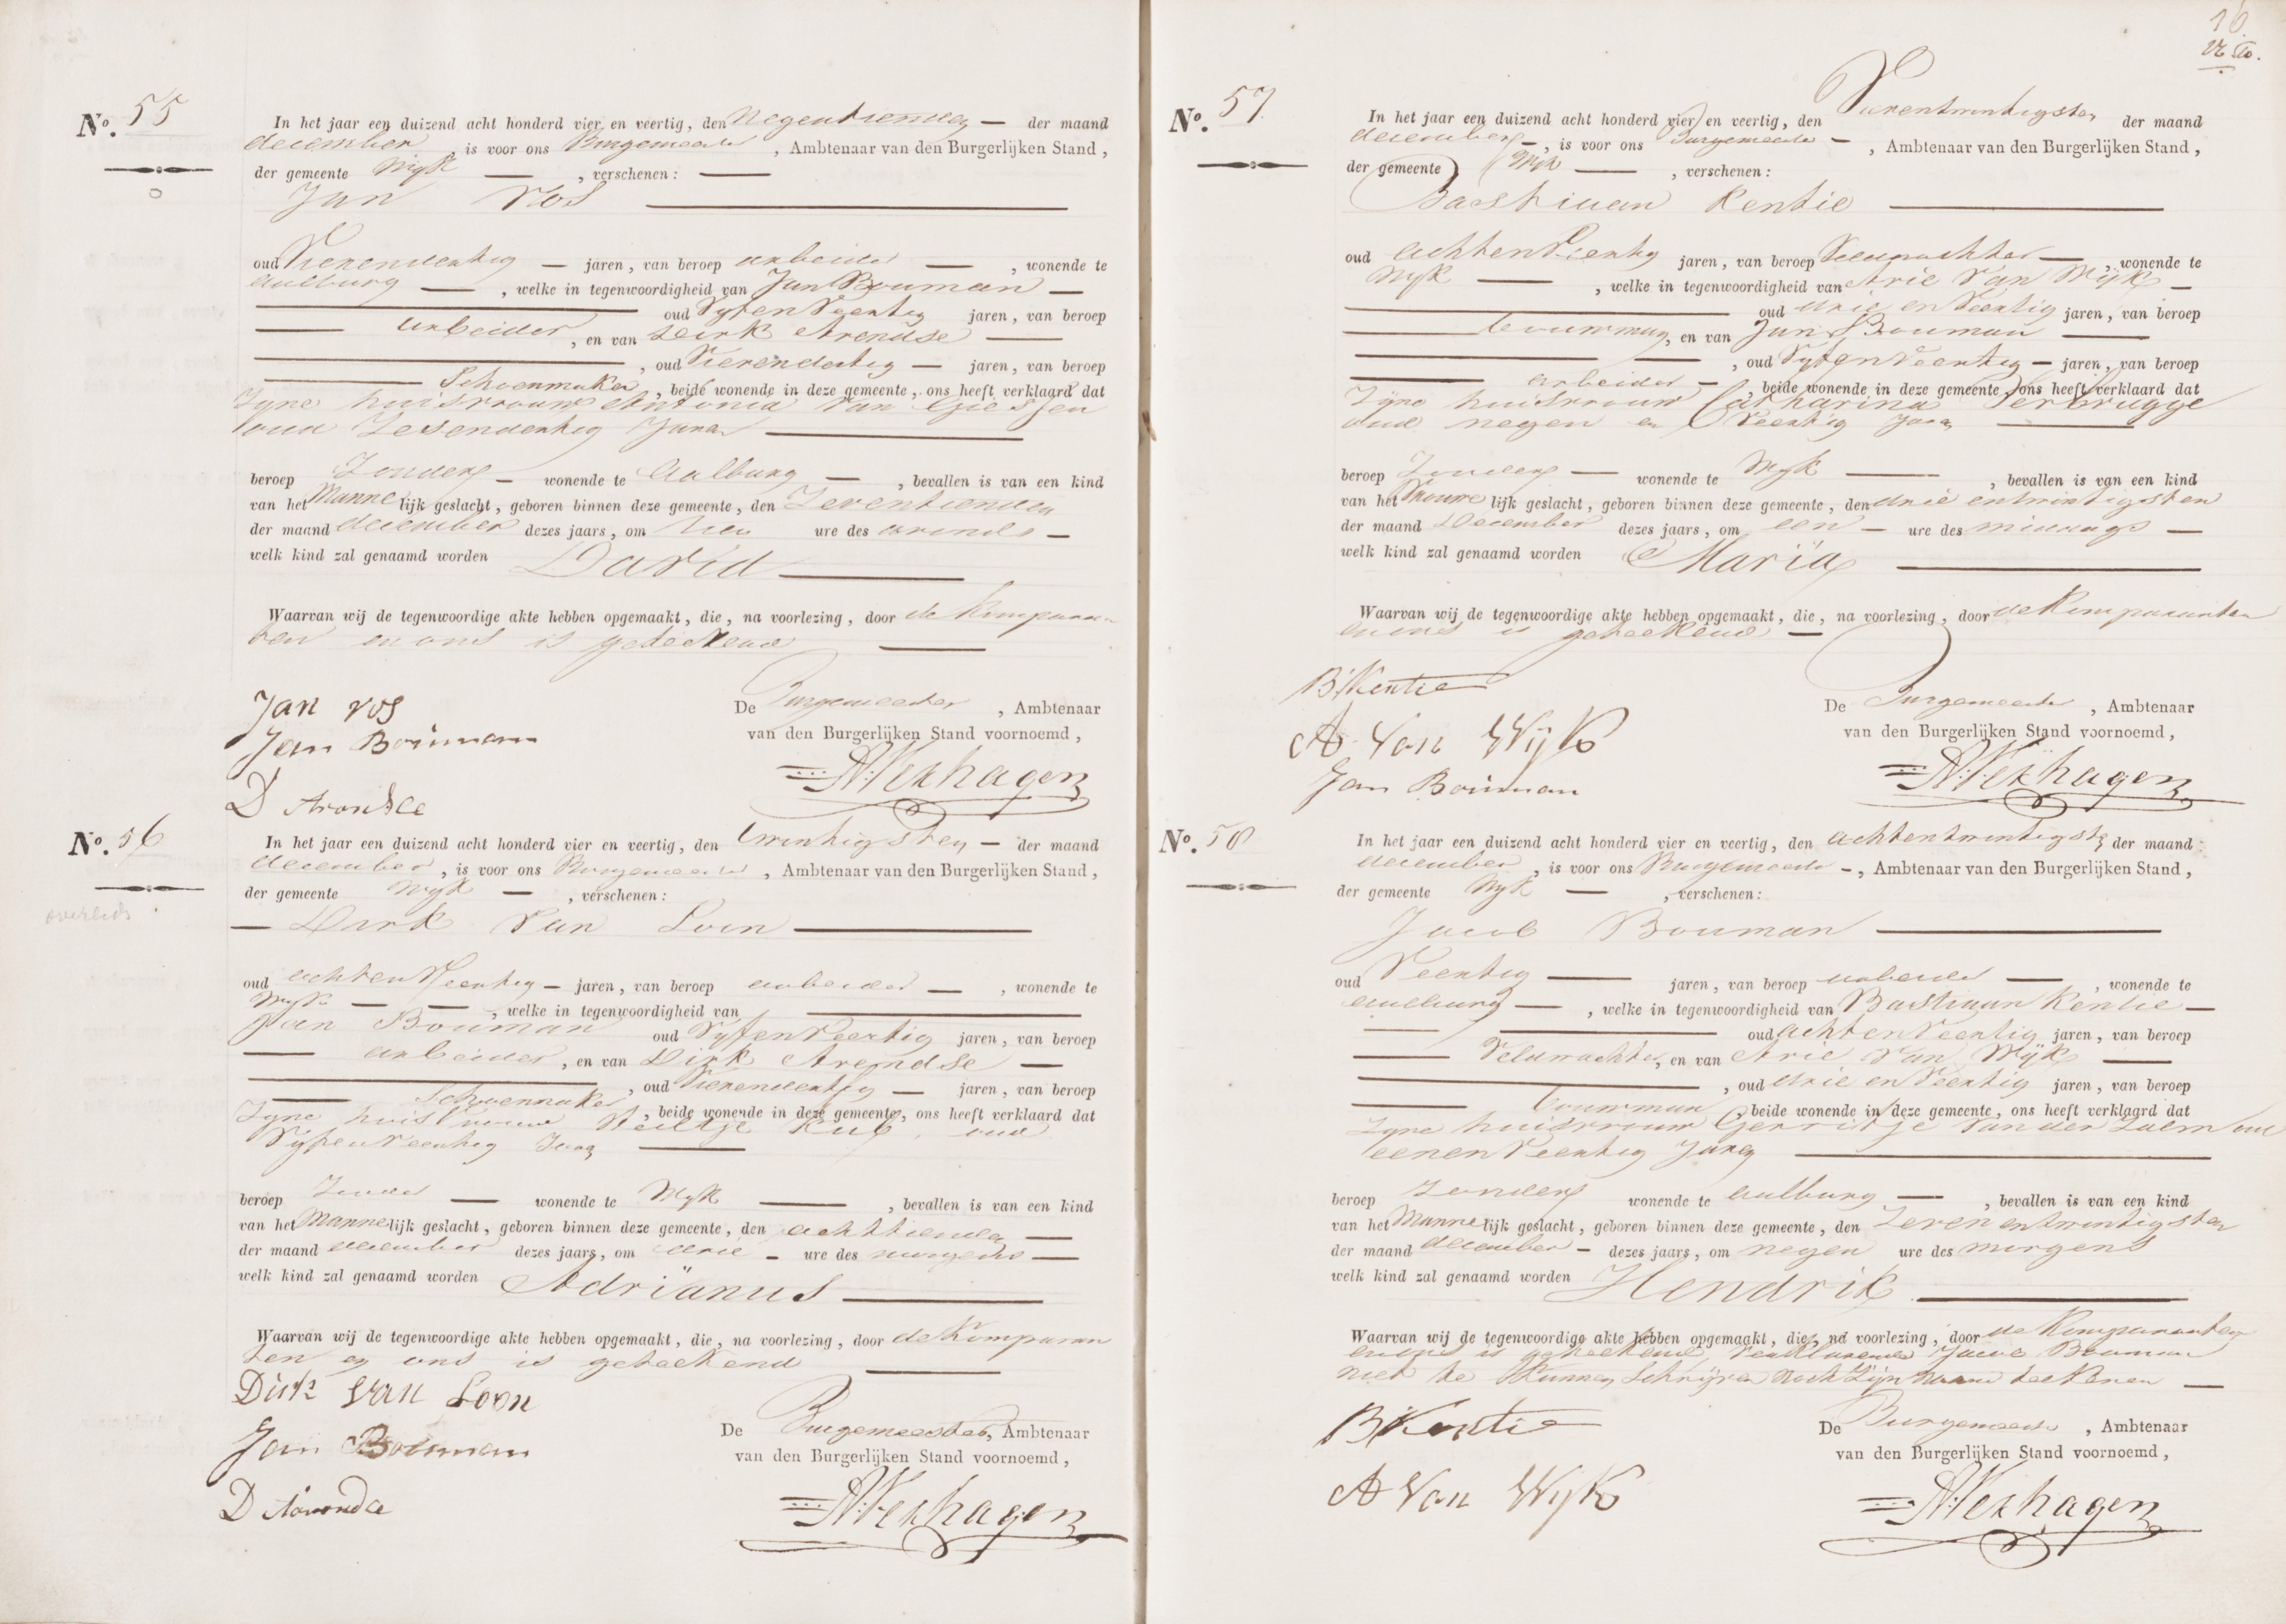 No. 55
In het jaar een duizend acht honderd vier en veertig, den Negentienden der maand
december, is voor ons Burgemeester, Ambtenaar van den Burgerlijken Stand,
der gemeente Wyk, verschenen:
Jan Vos
oud Vierendertig jaren, van beroep arbeider, wonende te
Aalburg, welke in tegenwoordigheid van Jan Bouman
oud Vyfen Veertig jaren, van beroep
arbeider, en van Dirk Arendse
, oud Vierendertig jaren, van beroep
Schoenmaker, beide wonende in deze gemeente, ons heeft verklaard dat
Zyne huisvrouw Antonia van Giessen
oud Zesendertig Jaren
beroep Zonder wonende te Aalburg, bevallen is van een kind
van het Mannelijk geslacht, geboren binnen deze gemeente, den Zeventienden
der maand december dezes jaars, om tien ure des avonds
welk kind zal genaamd worden David
Waarvan wij de tegenwoordige akte hebben opgemaakt, die, na voorlezing, door de Komparan
ten en ons is geteekend
Jan Vos
Jan Bouman
D Arendse
De Burgemeester, Ambtenaar
van den Burgerlijken Stand voornoemd,
A. Verhagen
No. 56
overleden
In het jaar een duizend acht honderd vier en veertig, den twintigsten der maand
december, is voor ons Burgemeester, Ambtenaar van den Burgerlijken Stand,
der gemeente Wyk, verschenen:
Dirk Van Loon
oud achten Veertig jaren, van beroep arbeider, wonende te
Wyk, welke in tegenwoordigheid van
Jan Bouman oud Vyfen Veertig jaren, van beroep
arbeider, en van Dirk Arendse
, oud Vierendertig jaren, van beroep
Schoenmaker, beide wonende in deze gemeente, ons heeft verklaard dat
Zyne huisvrouw Neeltje Kub, oud
Vyfen Veertig Jaren
beroep Zonder wonende te Wyk, bevallen is van een kind
van het Mannelijk geslacht, geboren binnen deze gemeente, den achttienden
der maand december dezes jaars, om drie ure des morgens
welk kind zal genaamd worden Adrianus
Waarvan wij de tegenwoordige akte hebben opgemaakt, die, na voorlezing, door de Komparan
ten en ons is geteekend
Dirk Van Loon
Jan Bouman
D Arendse
De Burgemeester, Ambtenaar
van den Burgerlijken Stand voornoemd,
A. Verhagen
16
No. 57
In het jaar een duizend acht honderd vier en veertig, den Vierentwintigsten der maand
december, is voor ons Burgemeester, Ambtenaar van den Burgerlijken Stand,
der gemeente Wyk, verschenen:
Bastiaan Kentie
oud achten Veertig jaren, van beroep Veldwachter, wonende te
Wyk, welke in tegenwoordigheid van Arie Van Wyk
oud drie en Veertig jaren, van beroep
bouwman, en van Jan Bouman
, oud Vyfen Veertig jaren, van beroep
arbeider, beide wonende in deze gemeente, ons heeft verklaard dat
Zyne huisvrouw Catharina Terbrugge
oud negen en Veertig Jaren
beroep Zonder wonende te Wyk, bevallen is van een kind
van het Vrouwelijk geslacht, geboren binnen deze gemeente, den drie entwintigsten
der maand December dezes jaars, om een ure des middags
welk kind zal genaamd worden Maria
Waarvan wij de tegenwoordige akte hebben opgemaakt, die, na voorlezing, door de Komparanten
en ons is geteekend
B Kentie
A Van Wijk
Jan Bouman
De Burgemeester, Ambtenaar
van den Burgerlijken Stand voornoemd,
A. Verhagen
No. 58
In het jaar een duizend acht honderd vier en veertig, den achtentwintigsten der maand
december, is voor ons Burgemeester, Ambtenaar van den Burgerlijken Stand,
der gemeente Wyk, verschenen:
Jacob Bouman
oud Veertig jaren, van beroep arbeider, wonende te
Aalburg, welke in tegenwoordigheid van Bastiaan Kentie
oud achten Veertig jaren, van beroep
Veldwachter, en van Arie Van Wyk
, oud drie en Veertig jaren, van beroep
bouwman, beide wonende in deze gemeente, ons heeft verklaard dat
Zyne huisvrouw Gerritje van der Zalm oud
eenen Veertig Jaren
beroep Zonder wonende te Aalburg, bevallen is van een kind
van het Mannelijk geslacht, geboren binnen deze gemeente, den Zeven entwintigsten
der maand december dezes jaars, om negen ure des morgens
welk kind zal genaamd worden Hendrik
Waarvan wij de tegenwoordige akte hebben opgemaakt, die, na voorlezing, door de Komparanten
en ons is geteekend verklarende Jacob Bouman
niet te Kunnen Schrijven noch Zijn Naam teekenen
B Kentie
A Van Wijk
De Burgemeester, Ambtenaar
van den Burgerlijken Stand voornoemd,
A. Verhagen